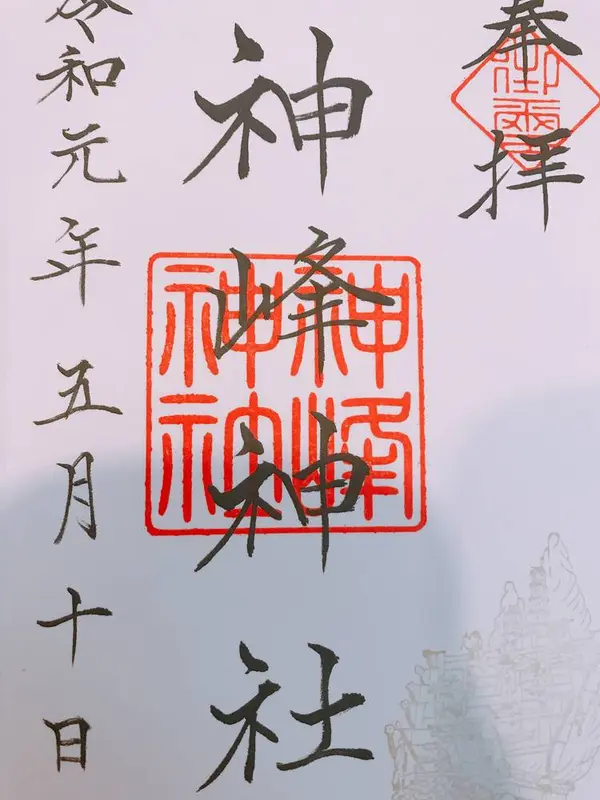 奉拝
神峰神社
神峰神社
令和元年五月十日